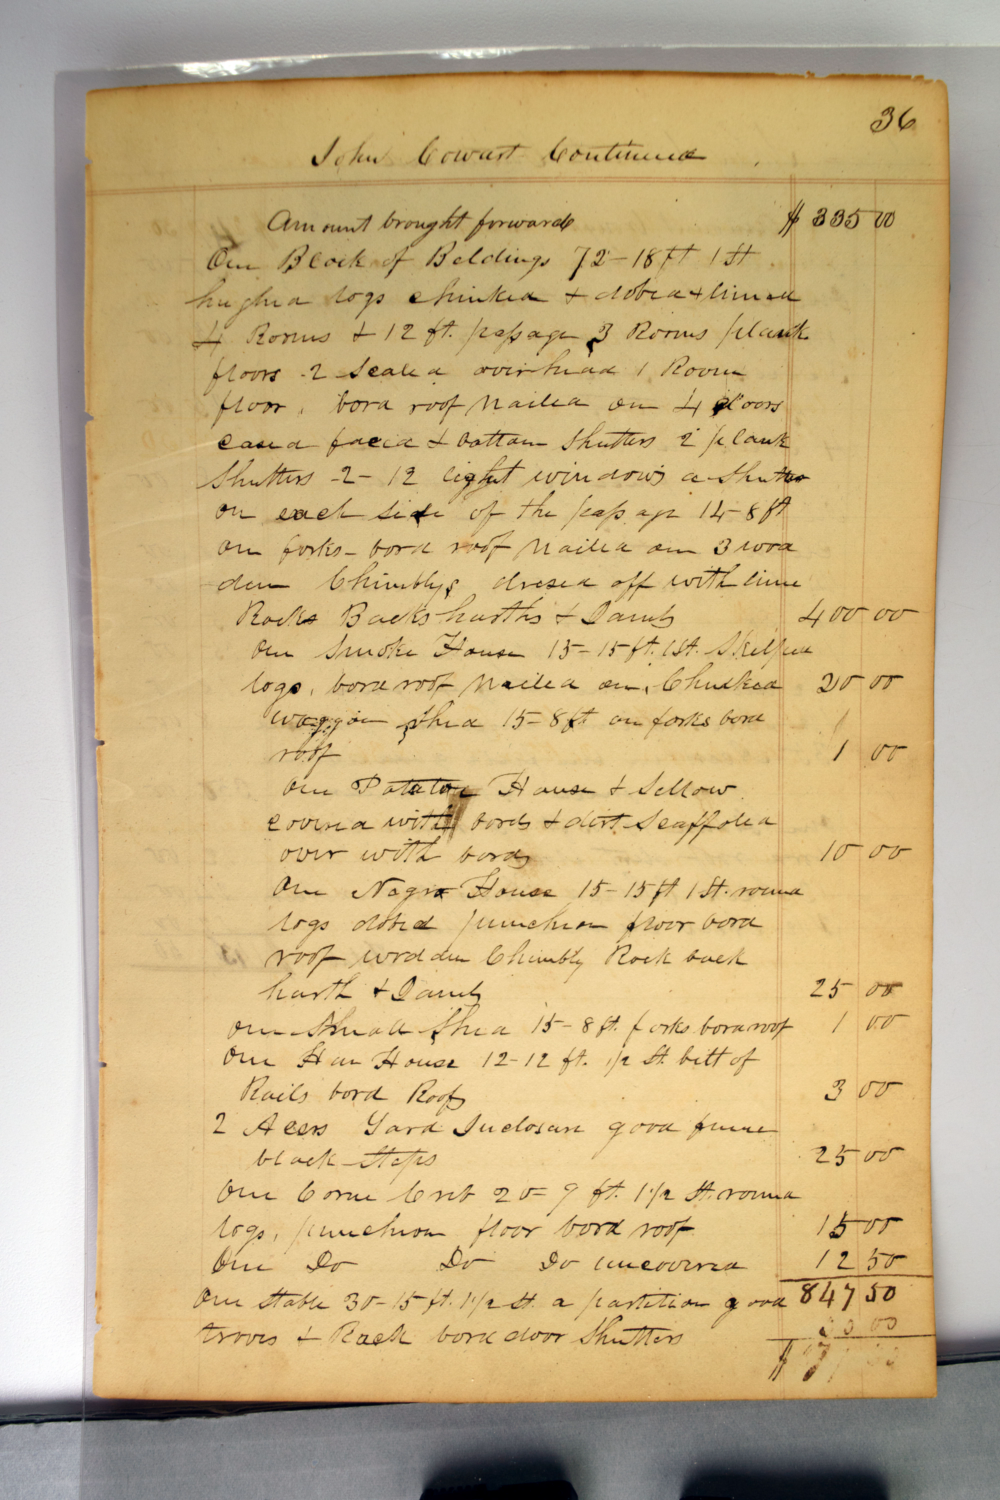 36
John Cowart Continued
Amount brought forward $ 335 00
One Block of Beldings 72-18 ft 1 St
hughed logs chinked & dobed & limed
4 Rooms & 12 ft. passage 3 Rooms plank
floors 2 Sealed overhead 1 Room
floor, bord roof Nailed on 4 doors
cased faced & bottom Shutters 2 plank
Shutters -2- 12 light windows a Shutter
on each side of the passage 14-8 ft
on forks - bord roof Nailed on 3 woo
den Chimblys dresed off with lime
Rocks Backs harths & Jambs 400 00
One Smoke House 15-15 ft. 1 St. Skelped
logs, bord roof Nailed on, Chinked 20 00
waggon Shed 15-8 ft on forks bord
roof 1 00
One Potatoe House & Sellow
covered with bords & dirt Scaffoled
over with bords 10 00
One Negro House 15-15 ft 1 St. round
logs dobed puncheon floor bord
roof wooden Chimbly Rock back
harth & Jambs 25 00
one Shed 15-8 ft. forks bord roof 1 00
One Hen House 12-12 ft. 1/2 St. bilt of
Rails bord Roof 3 00
2 Acers Yard Inclosure good fence
block Steps 25 00
One Corne Crib 20-9 ft. 1 1/2 St. round
logs, puncheon floor bord roof 15 00
One Do Do Do uncovered 12 50
847 50
One Stable 30-15 ft. 1 1/2 St. a partition good
troves & Rack bord door Shutters 00
$